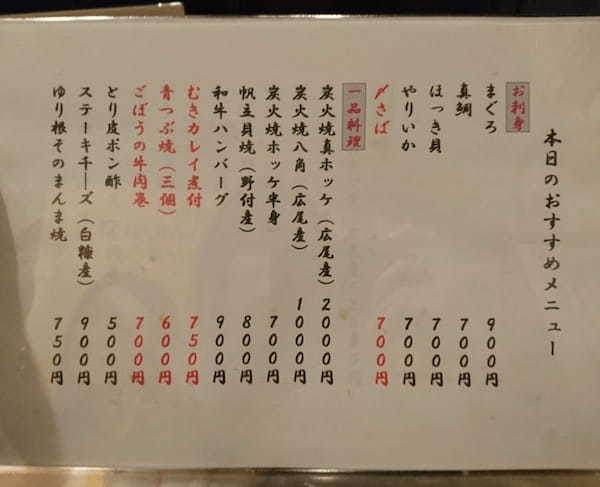 本日のおすすめメニュー
お刺身
まぐろ 900円
真鯛 700円
ほっき貝 700円
やりいか 700円
〆さば 700円
一品料理
炭火焼真ホッケ(広尾産) 2000円
炭火焼八角(広尾産) 1000円
炭火焼ホッケ半身 700円
帆立貝焼(野付産) 800円
和牛ハンバーグ 900円
むきカレイ煮付 750円
青つぶ焼(三個) 600円
ごぼうの牛肉巻 700円
とり皮ポン酢 500円
ステーキチーズ(白糠産) 900円
ゆり根そのまんま焼 750円